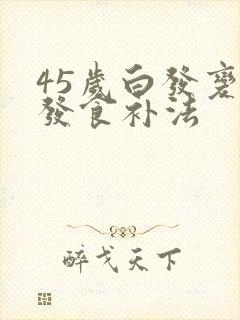 45歲白發變
發食补法
醉戈天下